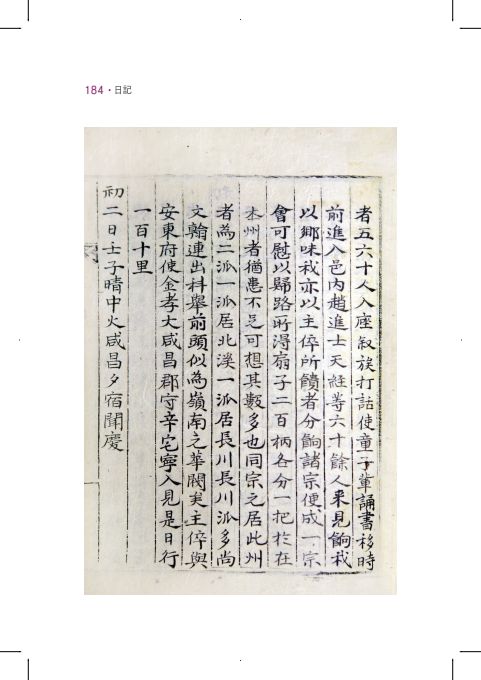 184・日記
者五六十人入座叙族打話使童子輩誦書移時
前進入邑內趙進士天経等六十餘人来見餉我
以鄉味我亦以主倅所饋者分餉諸宗便成一宗
會可慰以歸路所得扇子二百柄各分一把於在
本州者猶患不足可想其數多也同宗之居此州
者為二派一派居北溪一派居長川長川派多尚
文翰連出科舉前頭似為嶺南之華閥矣主倅與
安東府使金孝大咸昌郡守辛宅寧入見是日行
一百十里
初二日壬子晴中火咸昌夕宿聞慶